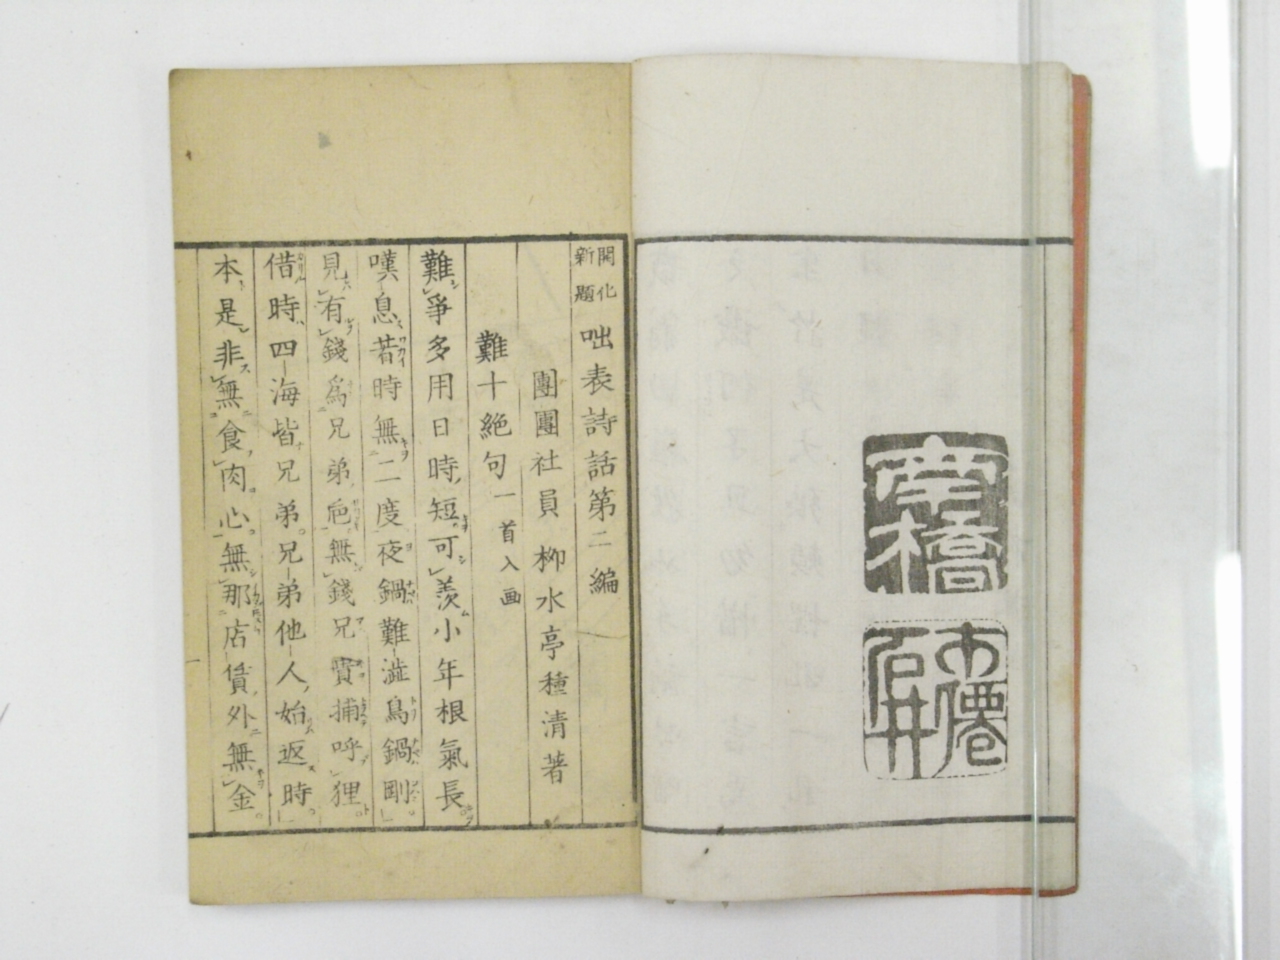 開化新題 咄表詩話第二編
團團社員 柳水亭種清著
難十絶句 一首入画
難爭多用日時短可羨小年根氣長
嘆息若時無二度夜鍋難澁鳥鍋剛
見有錢為兄弟巵無錢兄實捕呼狸
借時四海皆兄弟兄弟他人始返時
本是非無食肉心無那店賃外無金